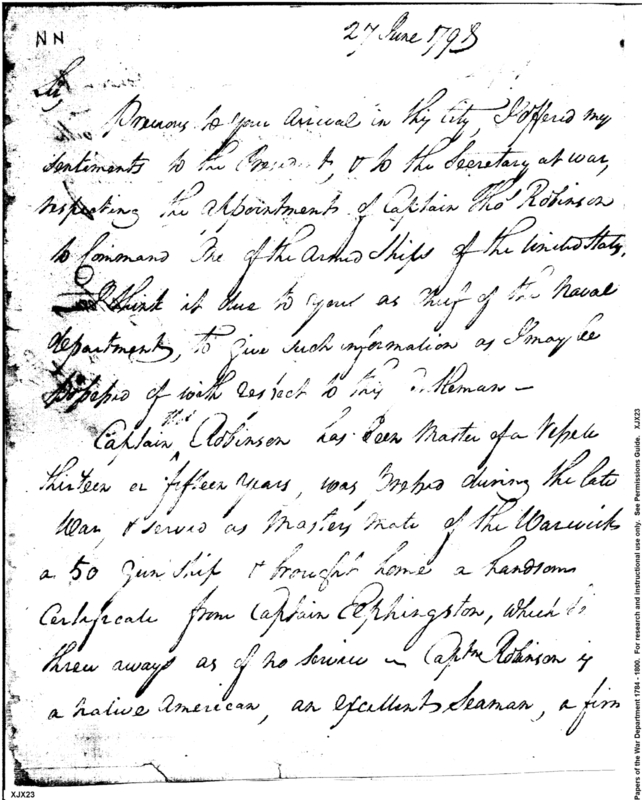 NN
27 June 1798
Sir,
Previous to your arrival in this City, I offered my
sentiments to the President, & to the Secretary at War,
respecting the appointments of Captain Thos Robinson
to Command one of the armed Ships of the United States.
I think it due to you as Chief of the Naval
department, to give such information as I may be
possessed of with respect to this Gentleman –
Captain Thos Robinson has been Master of a Vessele
thirteen or fifteen years, was Pressed during the late
War, & served as Master's Mate of the Warwick
a 50 gun ship & brought home a handsome
Certificate from Captain Elphingston, which he
threw away as of no service – Captne Robinson is
a native American, an excellent Seaman, a firm
Papers of the War Department 1784 - 1800. For research and instructional use only. See Permissions Guide. XJX23
XJX23